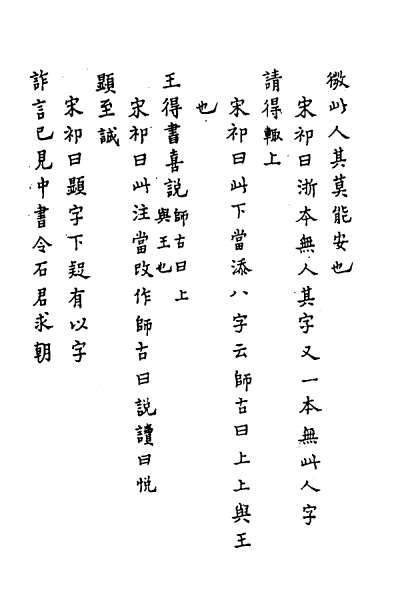 微此人其莫能安也
宋祁曰浙本無人其字又一本無此人字
請得輙上
宋祁曰此下當添八字云師古曰上上與王
也
王得書喜説師古曰上與王也
宋祁曰此注當改作師古曰説讀曰悦
顯至誠
宋祁曰顯字下疑有以字
詐言已見中書令石君求朝